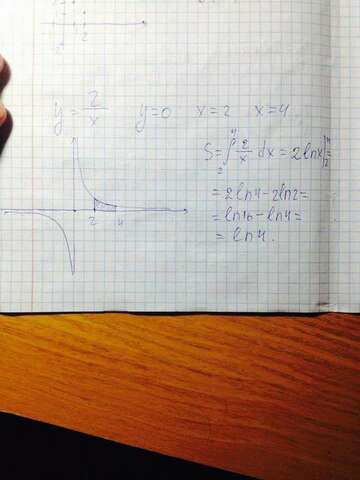 2
y = 2/x y=0 x=2 x=4
S=∫₂⁴ 2/x dx = 2lnx|₂⁴ =
= 2ln4-2ln2 =
= ln16-ln4 =
= ln4.
2 4